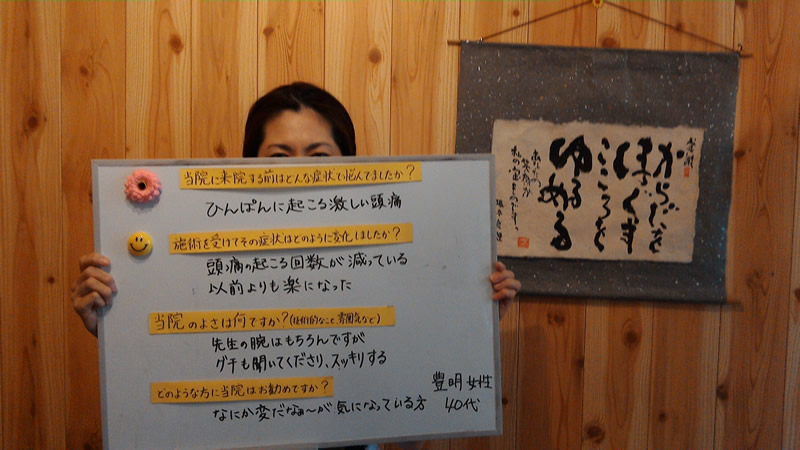 当院に来院する前はどんな症状で悩んでましたか?
ひんぱんに起こる激しい頭痛
施術を受けてその症状はどのように変化しましたか?
頭痛の起こる回数が減っている
以前よりも楽になった
当院のよさは何ですか?(技術的なこと、雰囲気など)
先生の腕はもちろんですが
グチも聞いてくださり、スッキリする
どのような方に当院はお勧めですか?
なにか変だなぁ〜が気になっている方
豊明 女性
40代
からだを
ほぐす
こころを
ゆるめる
あなたの
笑顔が
私の宝ものです。